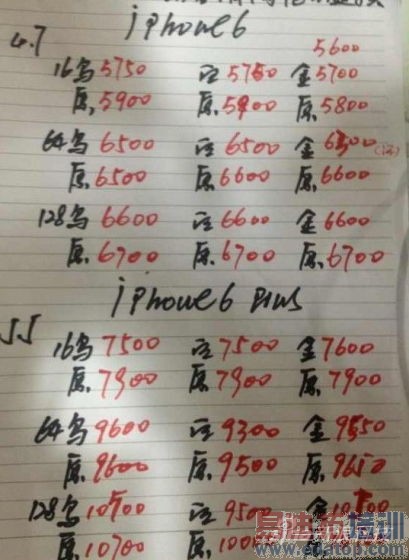 iPhone6
4.7
5600
16乌5750 白5750 金5700
原.5900 原.5900 原.5800
64乌6500 白6500 金6300
原.6500 原.6600 原.6600
128乌6600 白6600 金6600
原.6700 原.6700 原.6700
iPhone6 Plus
5.5
16乌7500 白7500 金7600
原.7900 原.7900 原.7900
64乌9600 白9300 金9550
原.9600 原.9500 原.9650
128乌10700 白9500 金
原.10700 原.
培训
www.edatop.com